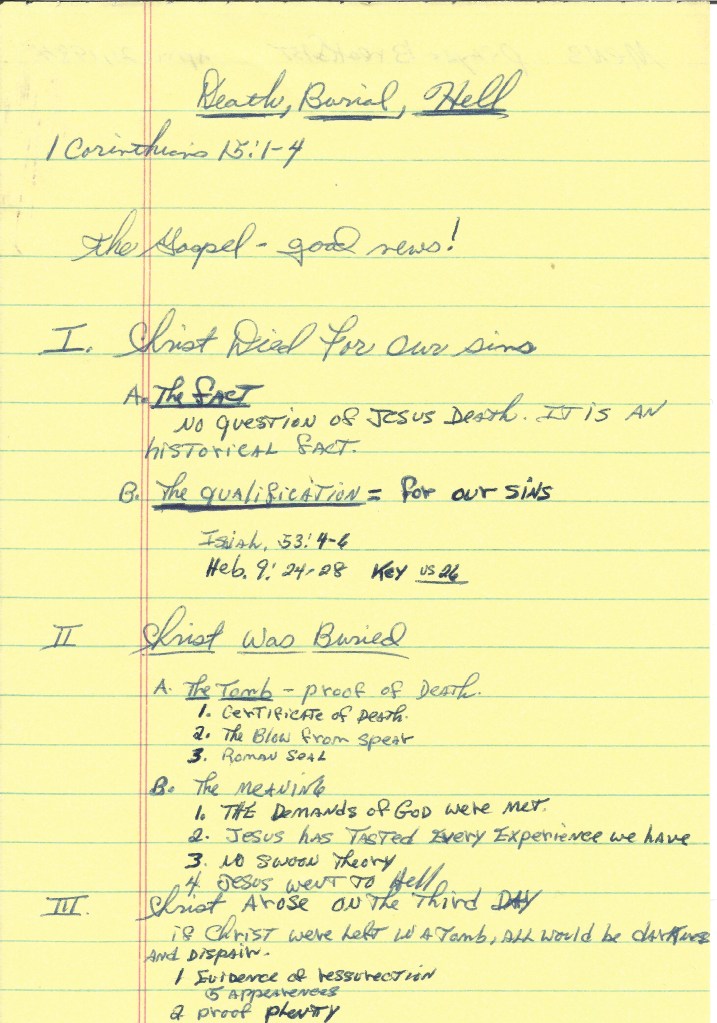 Death, Burial, Hell
1 Corinthians 15:1-4
The Gospel - good news!
I. Christ Died For Our sins
A. The FACT
NO QUESTION OF JESUS DEATH. IT IS AN
HISTORICAL FACT.
B. The QUALIFICATION = for our SINS
Isiah, 53:4-6
Heb. 9:24-28 Key vs 26
II Christ Was Buried
A. The Tomb - proof of DEATH.
1. CERTIFICATE of DEATH.
2. The BLOW from spear
3. ROMAN SEAL
B. The MEANING
1. THE DEMANDS of GOD were MET.
2. JESUS HAS TASTED Every EXPERIENCE we HAVE
3. NO SWOON Theory
4. JESUS WENT TO Hell
III. Christ Arose ON The Third DAY
if Christ were left in A Tomb, ALL would be darkness
AND DISPAIR.
1 EVIDENCE of ressurection
5 APPEARENCES
2 proof PLENTY